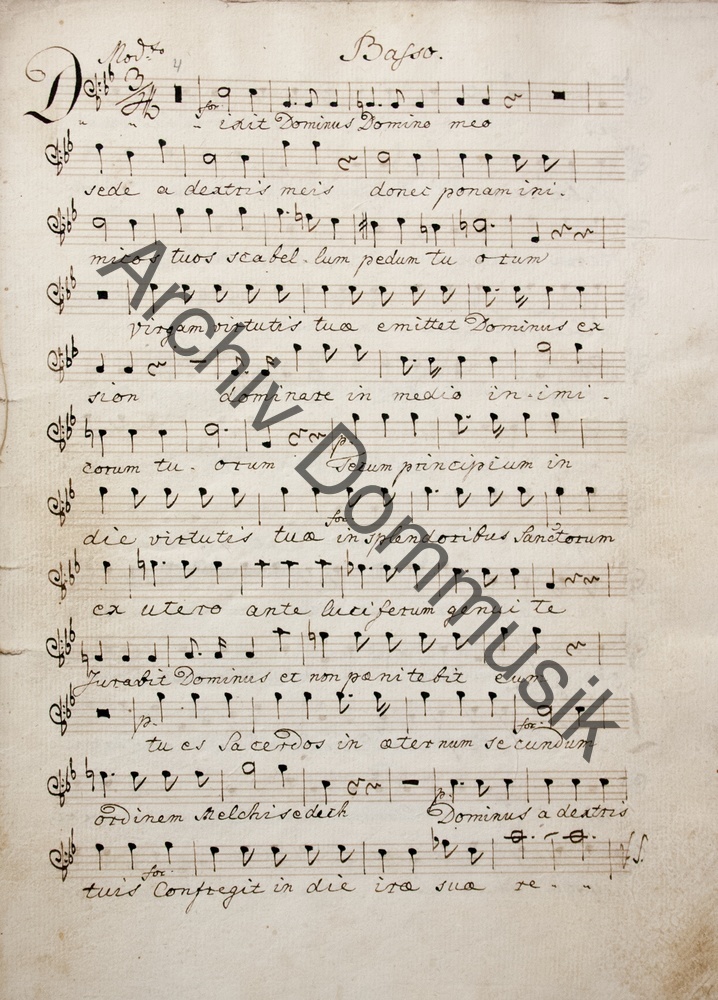 Basso.
Mod.to
4
D
3/4
for
ixit Dominus Domino meo
sede a dextris meis donec ponam ini-
micos tuos scabel-lum pedum tu orum
virgam virtutis tuæ emittet Dominus ex
sion dominare in medio in-imi-
p.
corum tu-orum Tecum principium in
for
die virtutis tuæ in splendoribus Sanctorum
ex utero ante luciferum genui te
Jurabit Dominus et non pænitebit eum
p. for.
tu es Sacerdos in æternum secundum
p.
ordinem Melchisedech Dominus a dextris
for. V.S.
tuis Confregit in die iræ suæ re-
Archiv Dommusik